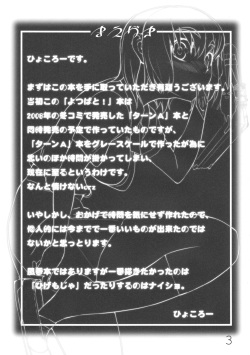 オマケガキ
ひょころーです。
まずはこの本を手に取っていただき有難うございます。
当初この「よつばと!」本は
2006年の冬コミで発売した「ターンA」本と
同時発売の予定で作っていたものですが、
「ターンA」本をグレースケールで作ったが為に
思いのほか時間が掛かってしまい、
現在に至るというわけです。
なんと情けないorz
いやしかし、おかげで時間を気にせず作れたので、
個人的には今までで一番いいものが出来たのでは
ないかと思っとります。
風香本ではありますが一番描きたかったのは
「ひげもじゃ」だったりするのはナイショ。
ひょころー
3